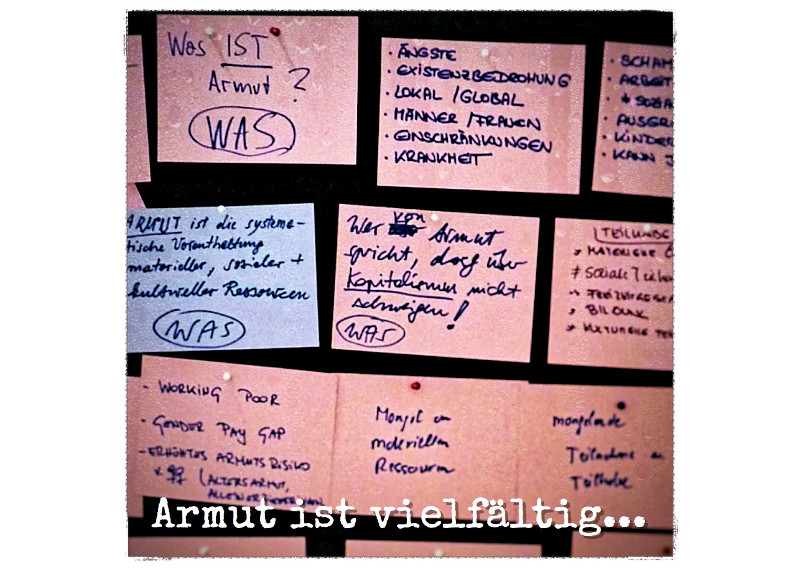 Was IST
Armut?
WAS
· ÄNGSTE
· EXISTENZBEDROHUNG
· LOKAL / GLOBAL
· MÄNNER / FRAUEN
· EINSCHRÄNKUNGEN
· KRANKHEIT
· SCHAM
· ARBEIT
· AUSGR
· KINDER
· KANN
ARMUT ist die systema-
tische Vorenthaltung
materieller, sozialer +
kultureller Ressourcen
WAS
Wer von Armut
spricht, darf über
Kapitalismus nicht
schweigen!
WAS
TEILUNG
BILDUNG
- WORKING POOR
- GENDER PAY GAP
- ERHÖHTES ARMUTSRISIKO
(ALTERSARMUT,
Mangel an
materiellen
Ressourcen
mangelnde
Teilnahme
Teilhabe
Armut ist vielfältig...